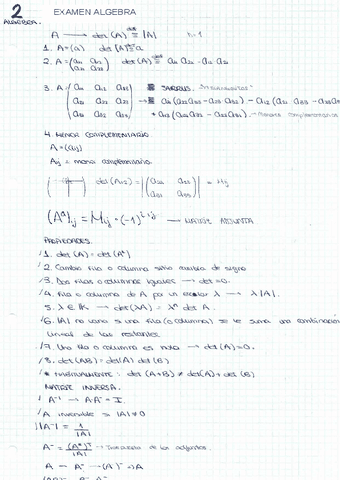 2 EXAMEN ALGEBRA
ALGEBRA.
A → det (A) = |A|
1. A = (a) det |A| = a
2. A = (a₁₁ a₁₂ / a₂₁ a₂₂) det (A) = a₁₁ a₂₂ - a₁₂ a₂₁
3. A = (a₁₁ a₁₂ a₁₃ / a₂₁ a₂₂ a₂₃ / a₃₁ a₃₂ a₃₃) → SARRUS.
a₁₁ (a₂₂ a₃₃ - a₂₃ a₃₂) - a₁₂ (a₂₁ a₃₃ -
4. MENOR COMPLEMENTARIO
A = (aij)
Aij = menor complementario.
det (A₁₂) = = Mij
(Aᵃ)ij = Mij · (-1)ⁱ⁺ʲ — MATRIZ ADJUNTA
PROPIEDADES.
1. det (A) = det (Aᵗ)
2. Cambio fila o columna signo cambia de signo
3. Dos filas o columnas iguales → det = 0.
4. Fila o columna de A por un escalar λ → λ |A|.
5. λ ∈ K → det (λA) = λⁿ det A.
6. |A| no varía si una fila (o columna) se le suma una combinación
lineal de las restantes.
7. Una fila o columna es nula → det (A) = 0.
8. det (AB) = det(A) det (B)
* : det (A+B) ≠ det(A) + det (B)
MATRIZ INVERSA.
A⁻¹ → A·A⁻¹ = I.
A invertible si |A| ≠ 0
|A⁻¹| = 1/|A|
A⁻¹ = (Aᵃ)ᵗ/|A| → Traspuesta de los adjuntos.